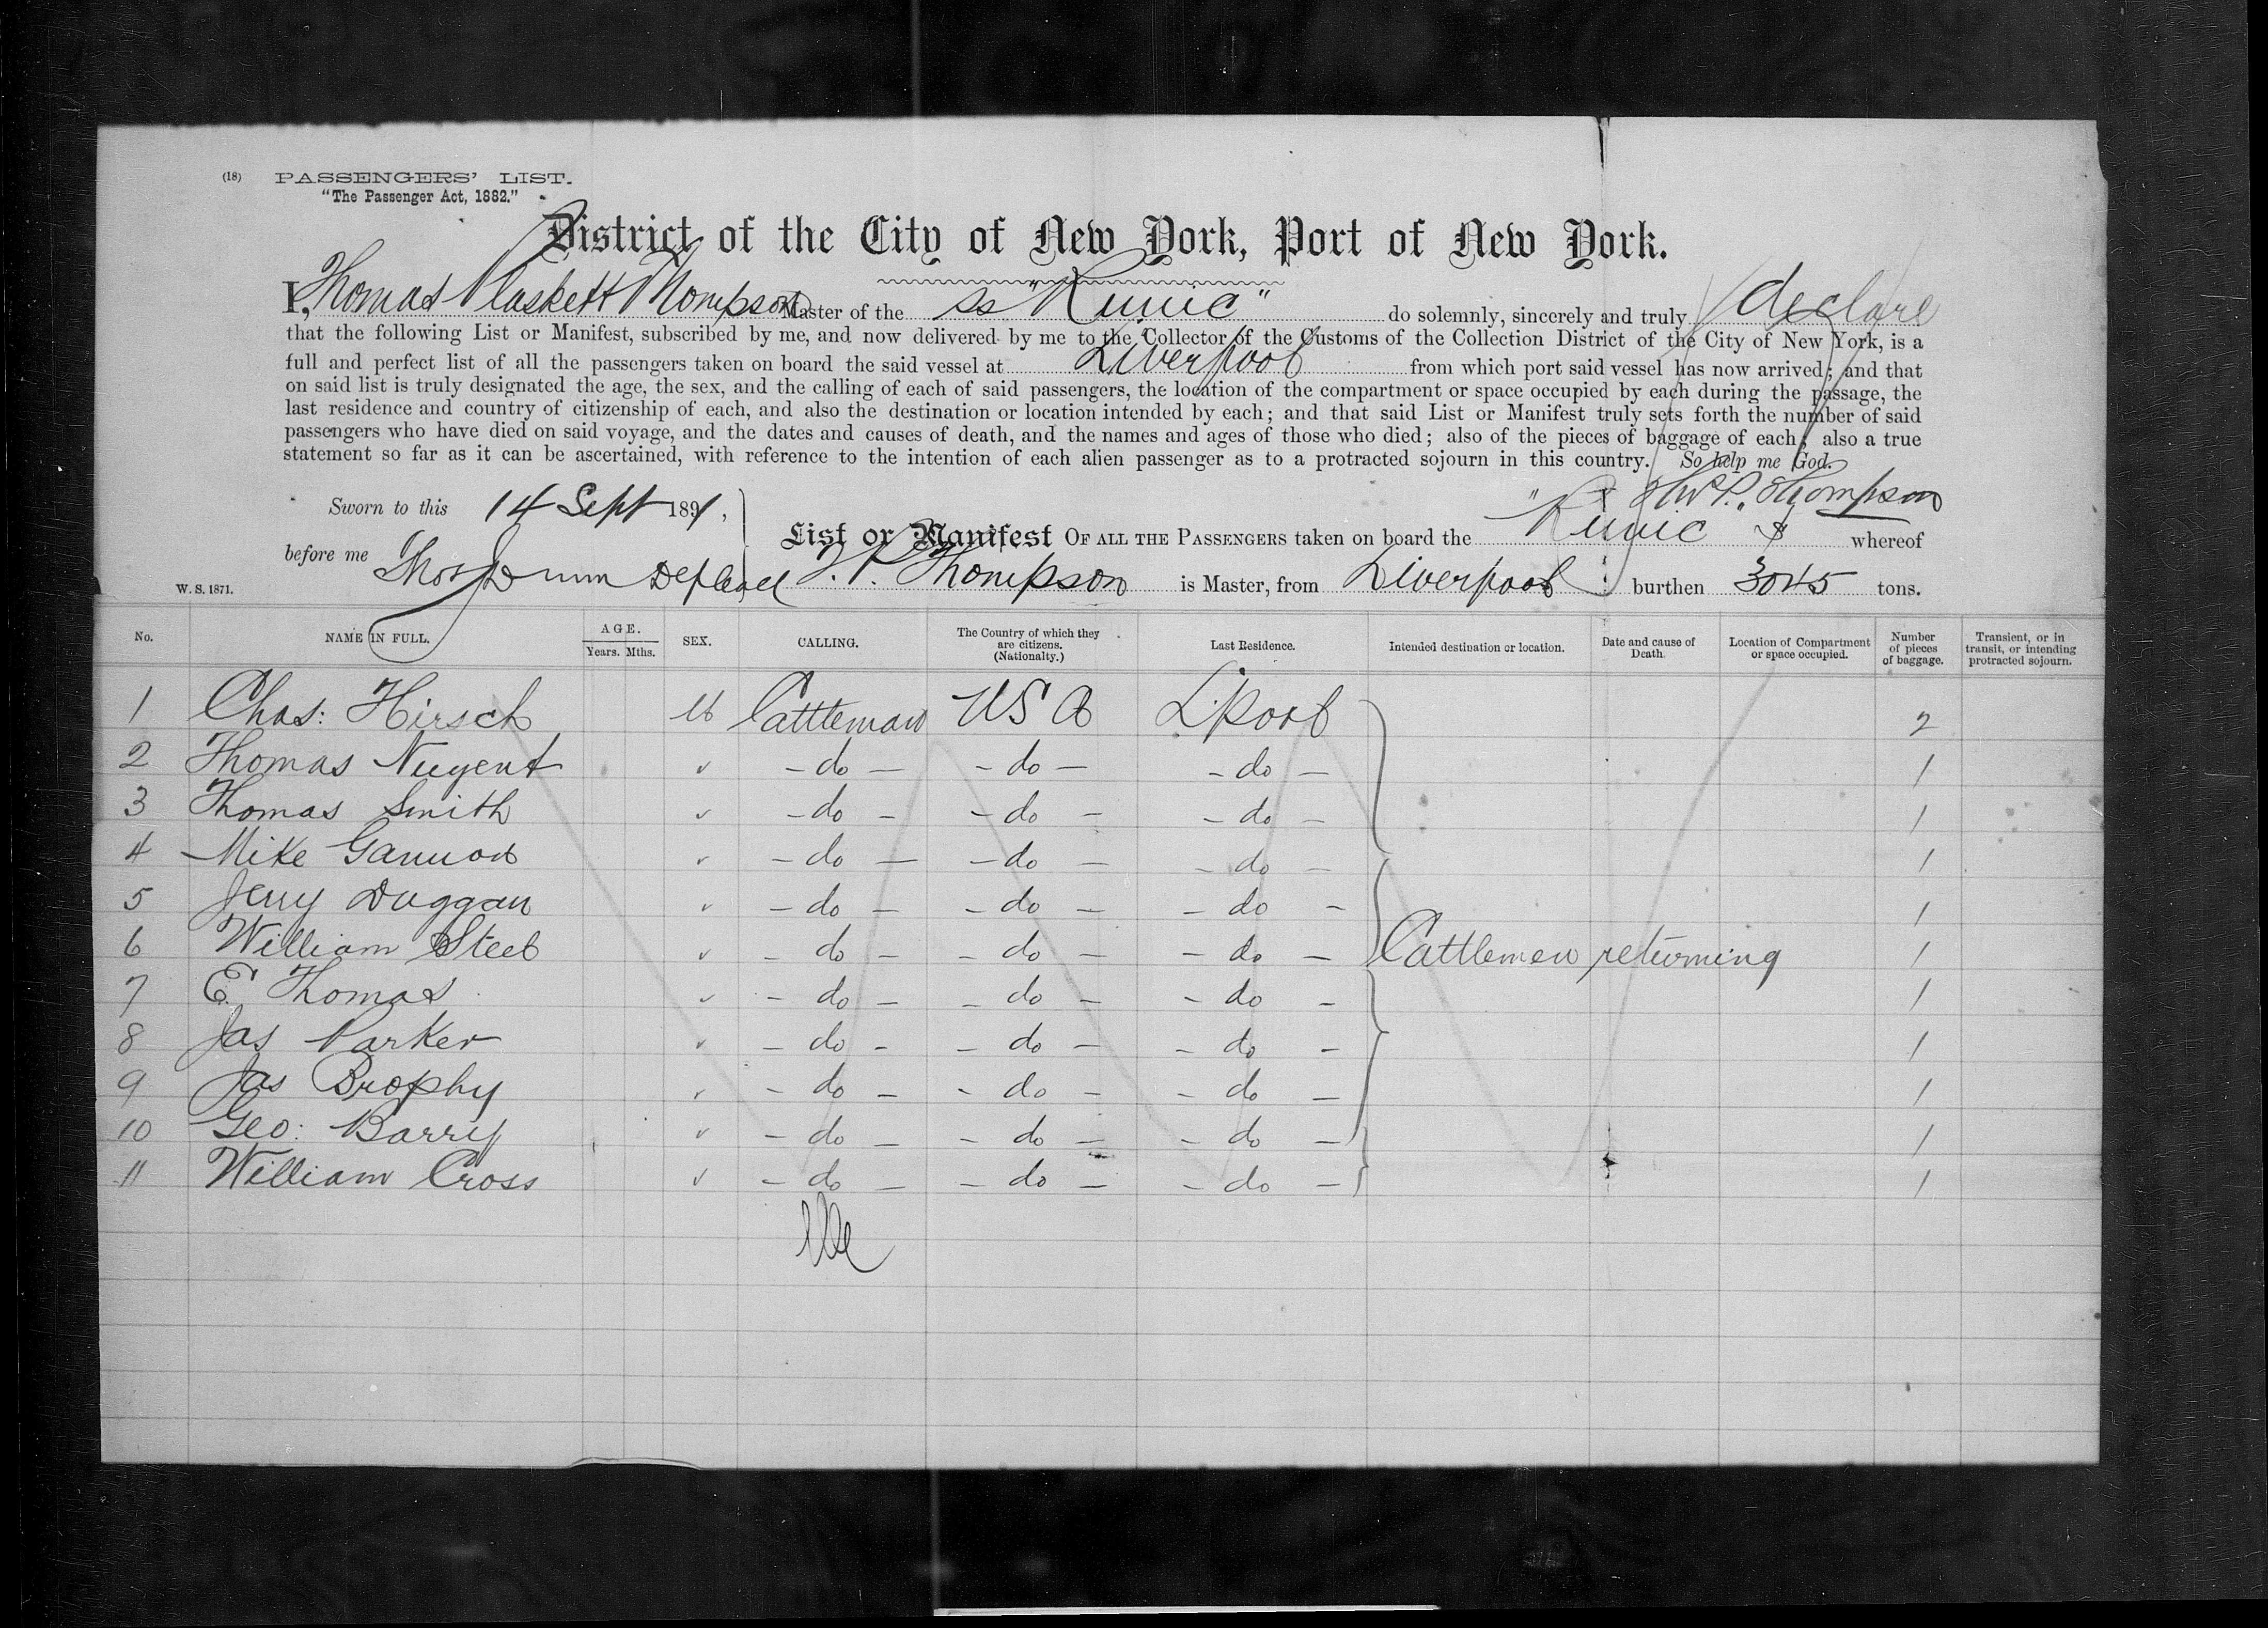 (18) PASSENGERS' LIST.
"The Passenger Act, 1882."
District of the City of New York, Port of New York.
I, Thomas Plaskett Thompson Master of the ss "Runic" do solemnly, sincerely and truly declare
that the following List or Manifest, subscribed by me, and now delivered by me to the Collector of the Customs of the Collection District of the City of New York, is a
full and perfect list of all the passengers taken on board the said vessel at Liverpool from which port said vessel has now arrived; and that
on said list is truly designated the age, the sex, and the calling of each of said passengers, the location of the compartment or space occupied by each during the passage, the
last residence and country of citizenship of each, and also the destination or location intended by each; and that said List or Manifest truly sets forth the number of said
passengers who have died on said voyage, and the dates and causes of death, and the names and ages of those who died; also of the pieces of baggage of each; also a true
statement so far as it can be ascertained, with reference to the intention of each alien passenger as to a protracted sojourn in this country. So help me God.
Sworn to this 14 Sept 1891, Thompson
before me Thos Dunn
List or Manifest OF ALL THE PASSENGERS taken on board the "Runic" whereof
T. P. Thompson is Master, from Liverpool burthen 3045 tons.
W. S. 1871.
No. NAME IN FULL. AGE. Years. Mths. SEX. CALLING. The Country of which they are citizens. (Nationalty.) Last Residence. Intended destination or location. Date and cause of Death. Location of Compartment or space occupied. Number of pieces of baggage. Transient, or in transit, or intending protracted sojourn.
1 Chas: Hirsch M Cattleman USA L'pool 2
2 Thomas Nugent - do - - do - - do - 1
3 Thomas Smith - do - - do - - do - 1
4 Mike Gannon - do - - do - - do - 1
5 Jerry Duggan - do - - do - - do - 1
6 William Steel - do - - do - - do - Cattlemen returning 1
7 E. Thomas - do - - do - - do - 1
8 Jas Parker - do - - do - - do - 1
9 Jas Brophy - do - - do - - do - 1
10 Geo: Barry - do - - do - - do - 1
11 William Cross - do - - do - - do - 1